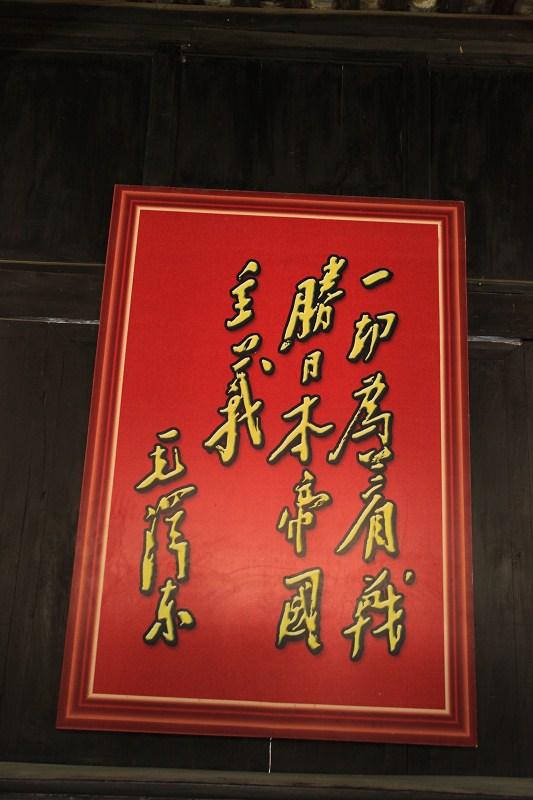 一切為着戰
勝日本帝國
主義
毛澤東